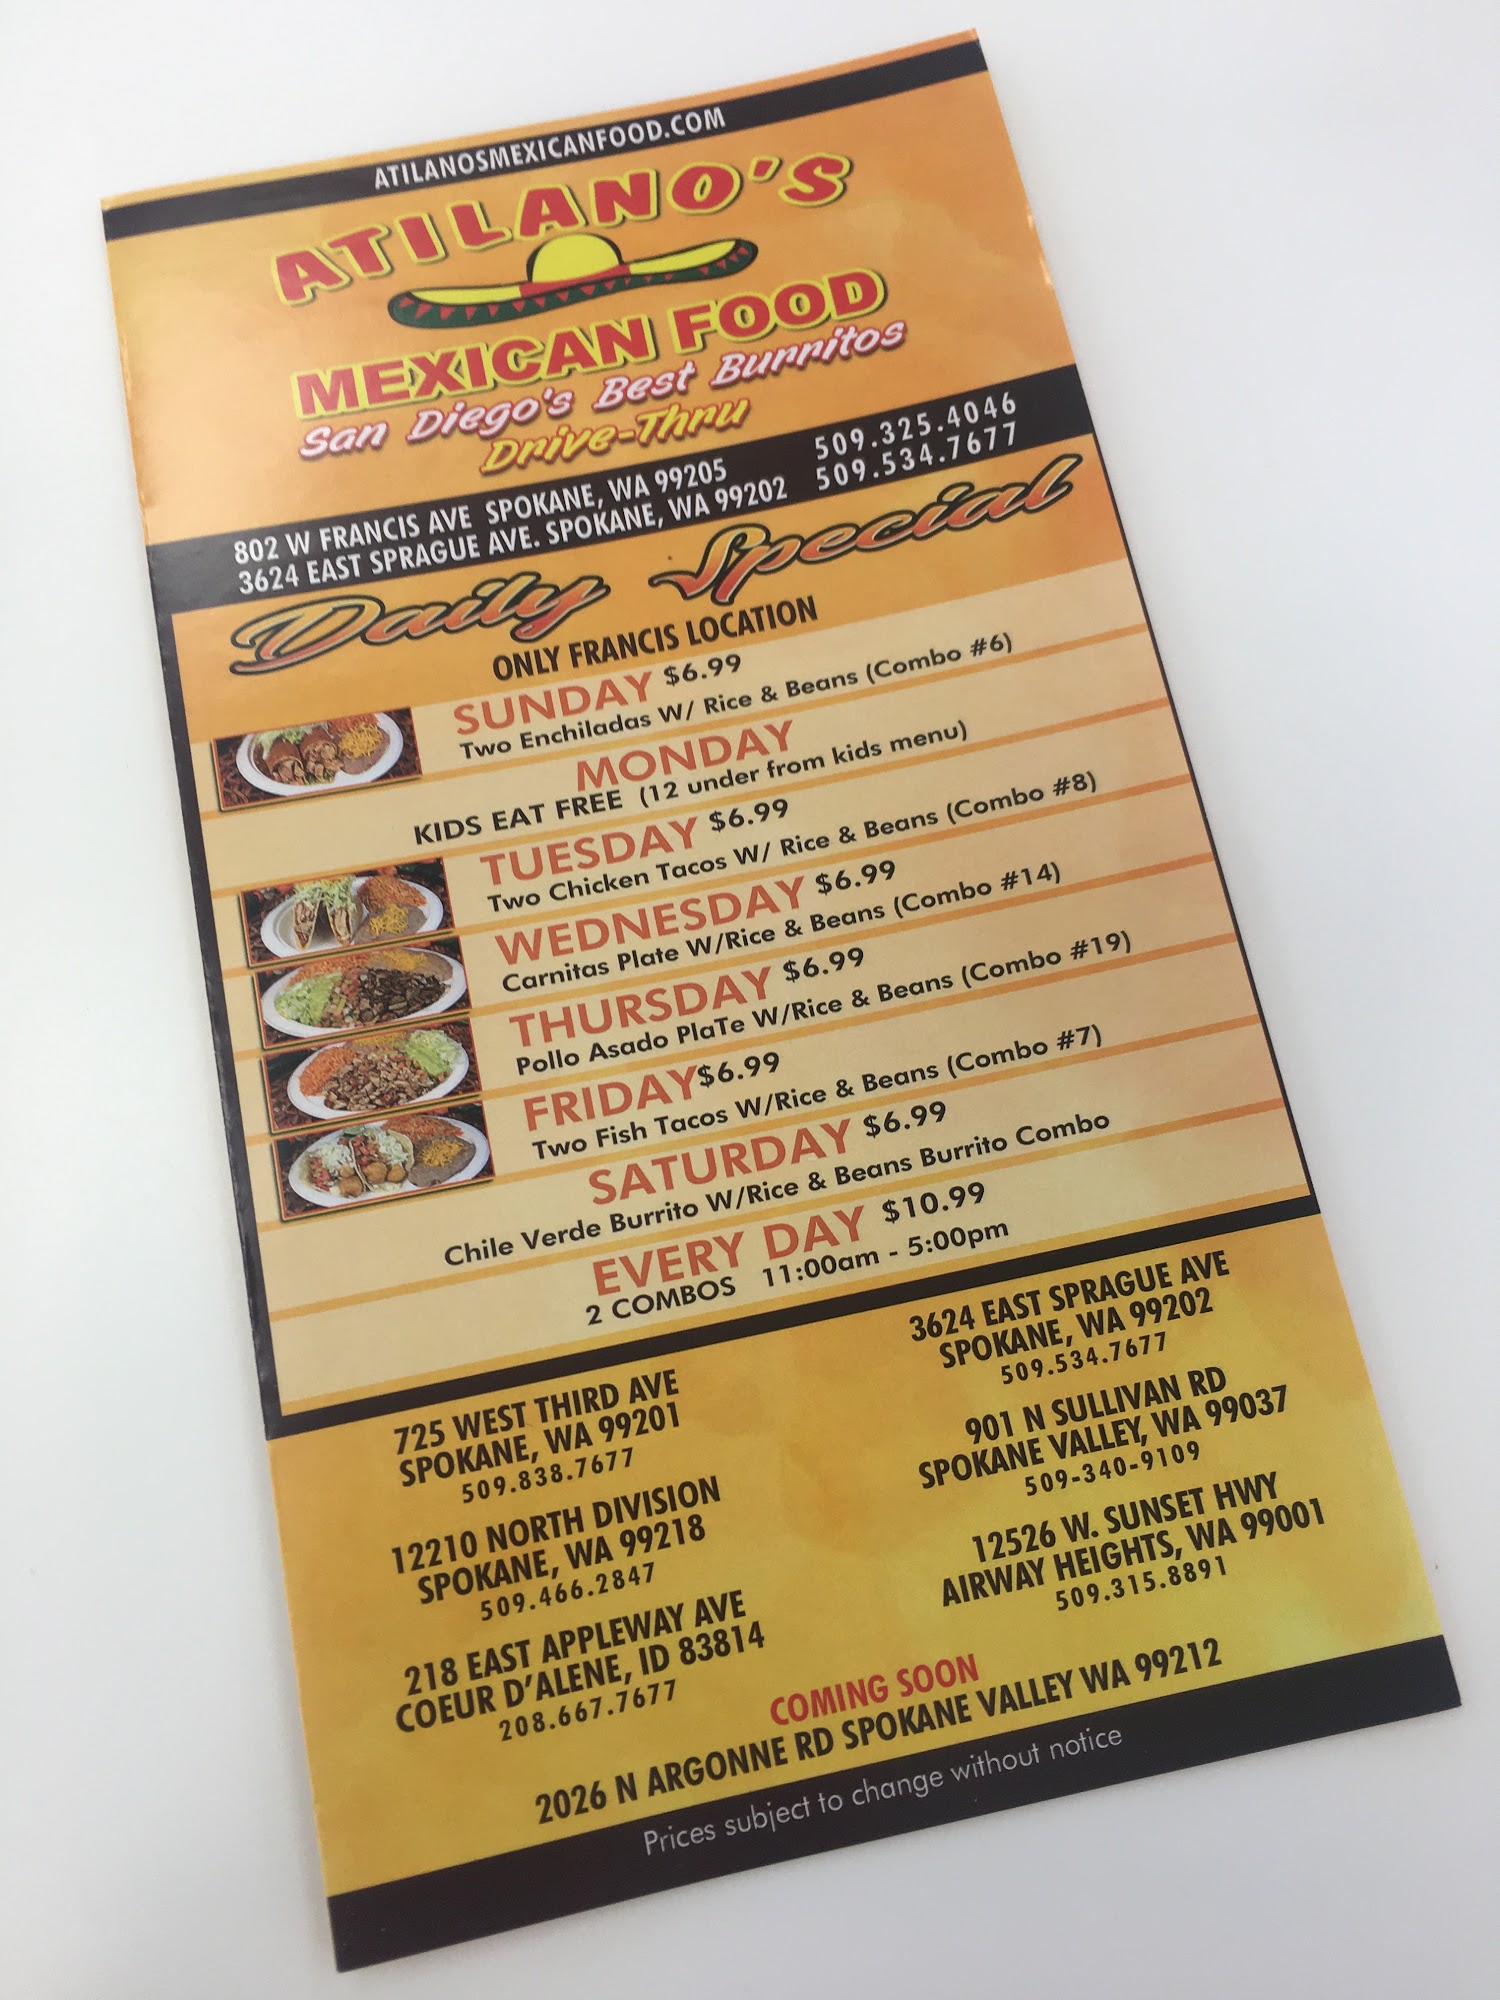 ATILANOSMEXICANFOOD.COM
ATILANO'S
MEXICAN FOOD
San Diego's Best Burritos
Drive-Thru
802 W FRANCIS AVE SPOKANE, WA 99205 509.325.4046
3624 EAST SPRAGUE AVE. SPOKANE, WA 99202 509.534.7677
Daily Special
ONLY FRANCIS LOCATION
SUNDAY $6.99
Two Enchiladas W/ Rice & Beans (Combo #6)
MONDAY
KIDS EAT FREE (12 under from kids menu)
TUESDAY $6.99
Two Chicken Tacos W/ Rice & Beans (Combo #8)
WEDNESDAY $6.99
Carnitas Plate W/Rice & Beans (Combo #14)
THURSDAY $6.99
Pollo Asado PlaTe W/Rice & Beans (Combo #19)
FRIDAY $6.99
Two Fish Tacos W/Rice & Beans (Combo #7)
SATURDAY $6.99
Chile Verde Burrito W/Rice & Beans Burrito Combo
EVERY DAY $10.99
2 COMBOS 11:00am - 5:00pm
725 WEST THIRD AVE
SPOKANE, WA 99201
509.838.7677
12210 NORTH DIVISION
SPOKANE, WA 99218
509.466.2847
218 EAST APPLEWAY AVE
COEUR D'ALENE, ID 83814
208.667.7677
3624 EAST SPRAGUE AVE
SPOKANE, WA 99202
509.534.7677
901 N SULLIVAN RD
SPOKANE VALLEY, WA 99037
509-340-9109
12526 W. SUNSET HWY
AIRWAY HEIGHTS, WA 99001
509.315.8891
COMING SOON
2026 N ARGONNE RD SPOKANE VALLEY WA 99212
Prices subject to change without notice